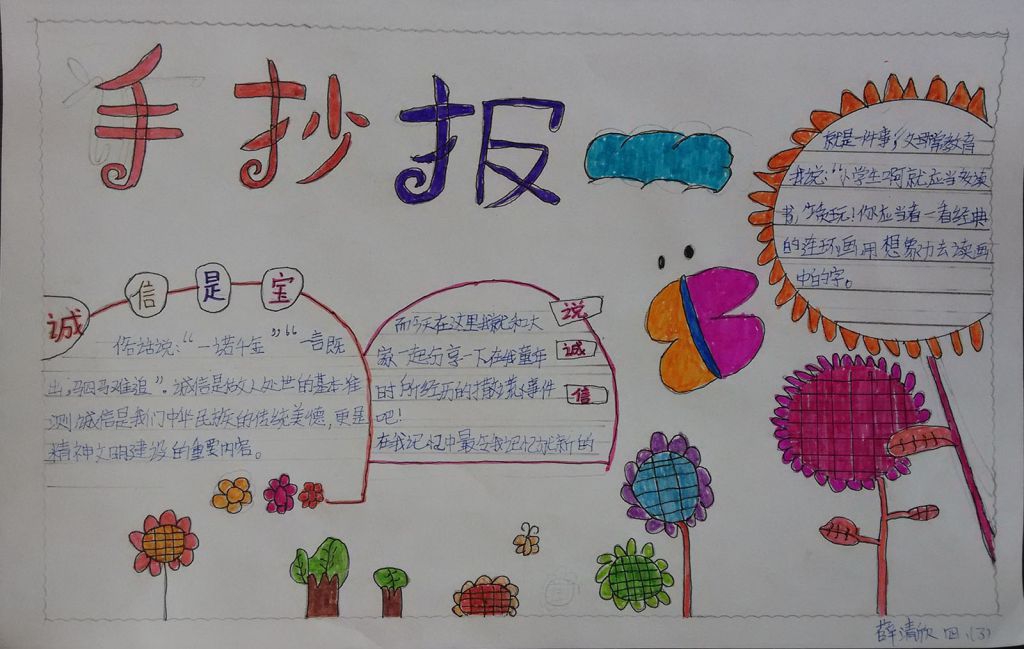 手抄报
诚信是宝
俗话说：“一诺千金”“一言既
出，驷马难追”。诚信是做人处世的基本准
则，诚信是我们中华民族的传统美德，更是
精神文明建设的重要内容。
说诚信
而今天在这里我就和大
家一起分享一下在我童年
时所经历的事件
吧！
在我记忆中最令我记忆犹新的
就是一件事，父母常教育
我说：“小学生啊就应当多读
书，少贪玩！你应当看一看经典
的连环画用想象力去读画
中的字。
薛清欣 四、(3)